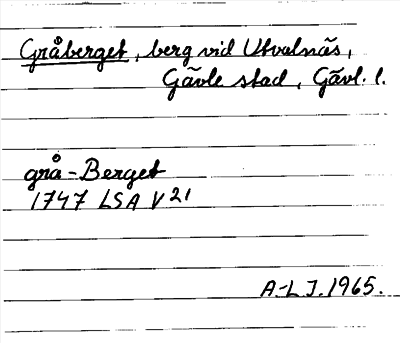 Gråberget, berg vid Utvalnäs,
Gävle stad, Gävl. l.
grå-Berget
1747 LSA V 21
A.-L J. 1965.